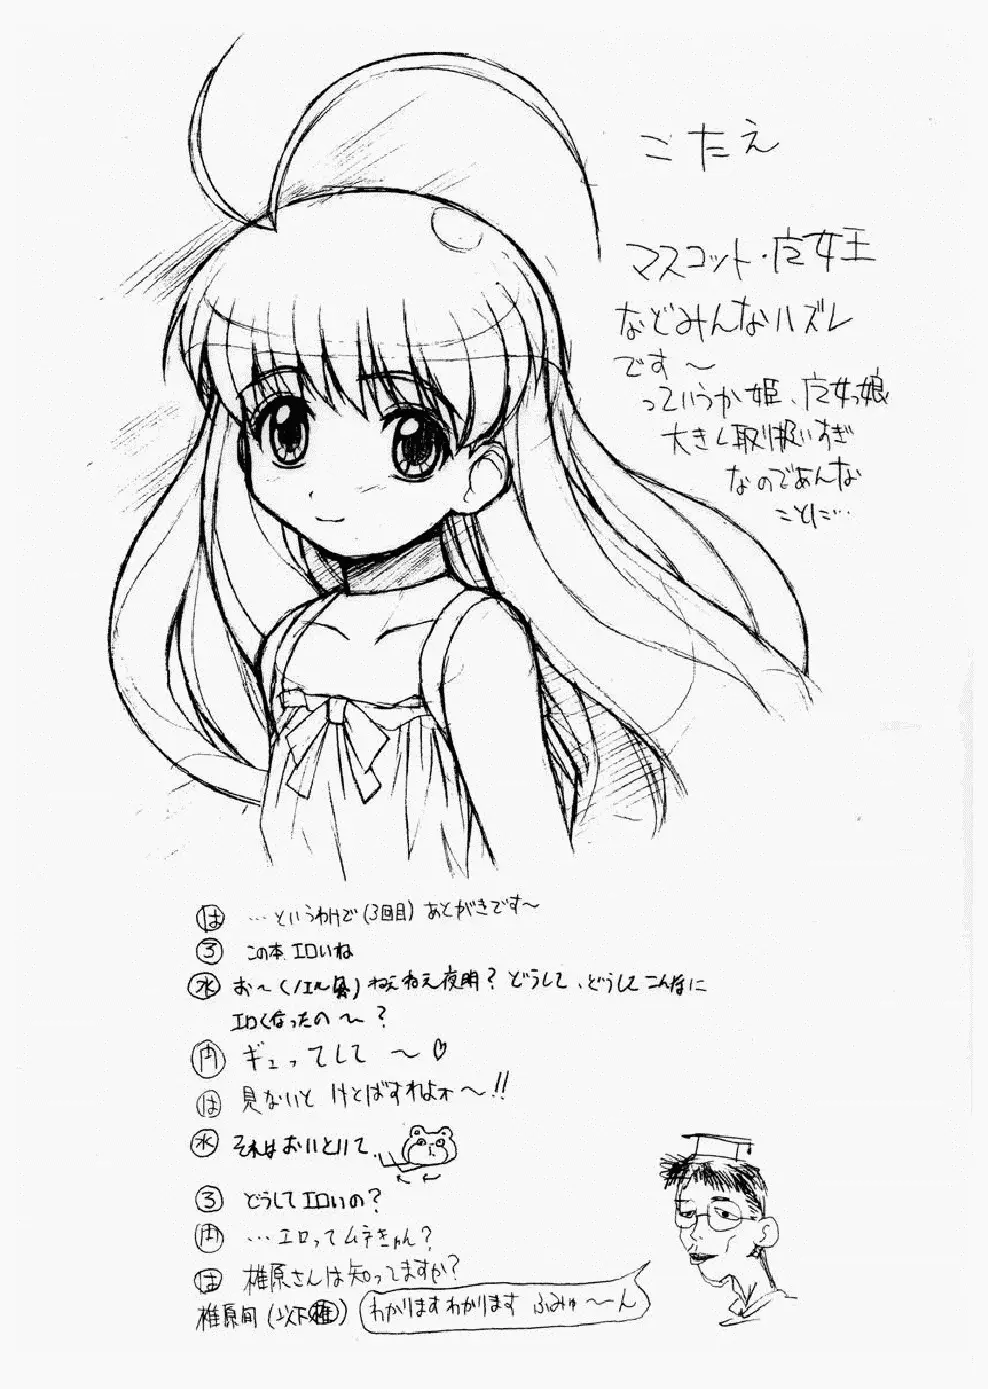 こたえ
マスコット・魔女王
などみんなハズレ
です〜
っていうか姫、魔女っ娘
大きく取り扱いすぎ
なのであんな
ことに…
は …というわけで(3回目)あとがきです〜
ろ この本エロいね
水 お〜(ノエル風)ねぇねぇ夜明?どうして、どうしてこんなに
エロくなったの〜?
ギュってして〜♡
は 見ないとけとばすわよォ〜!!
水 それはおいといて、
ろ どうしてエロいの?
…エロってムテきゅん?
は 椎原さんは知ってますか?
椎原旬(以下椎) わかりますわかります ふみゅ〜〜ん